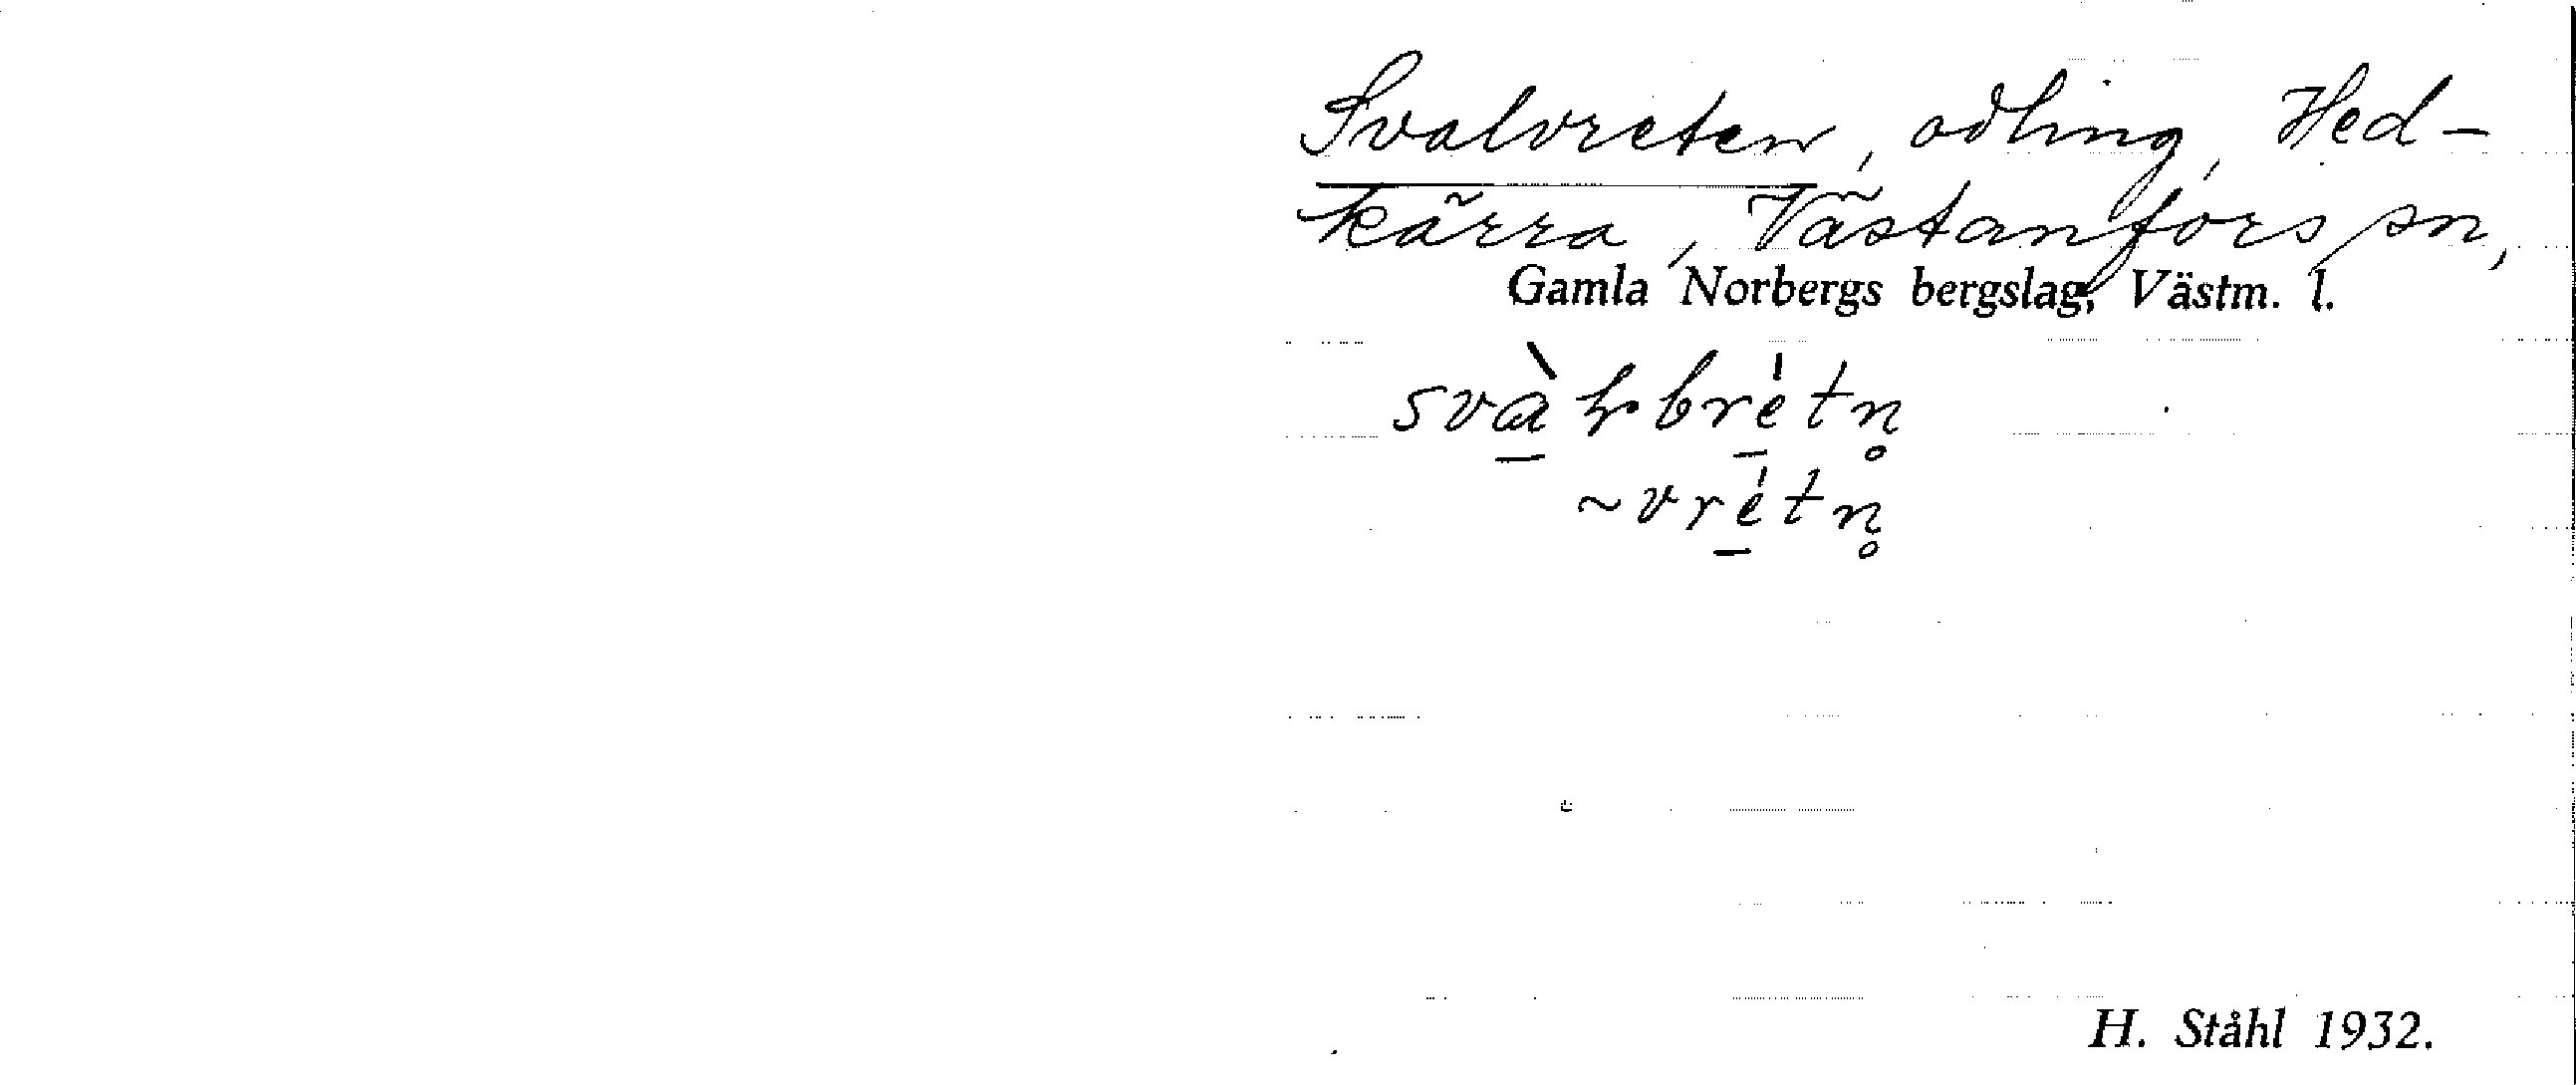 Svalvreten, odling, Hed-
kärra, Västanfors sn,
Gamla Norbergs bergslag, Västm. l.
~vrétn̥
H. Ståhl 1932.